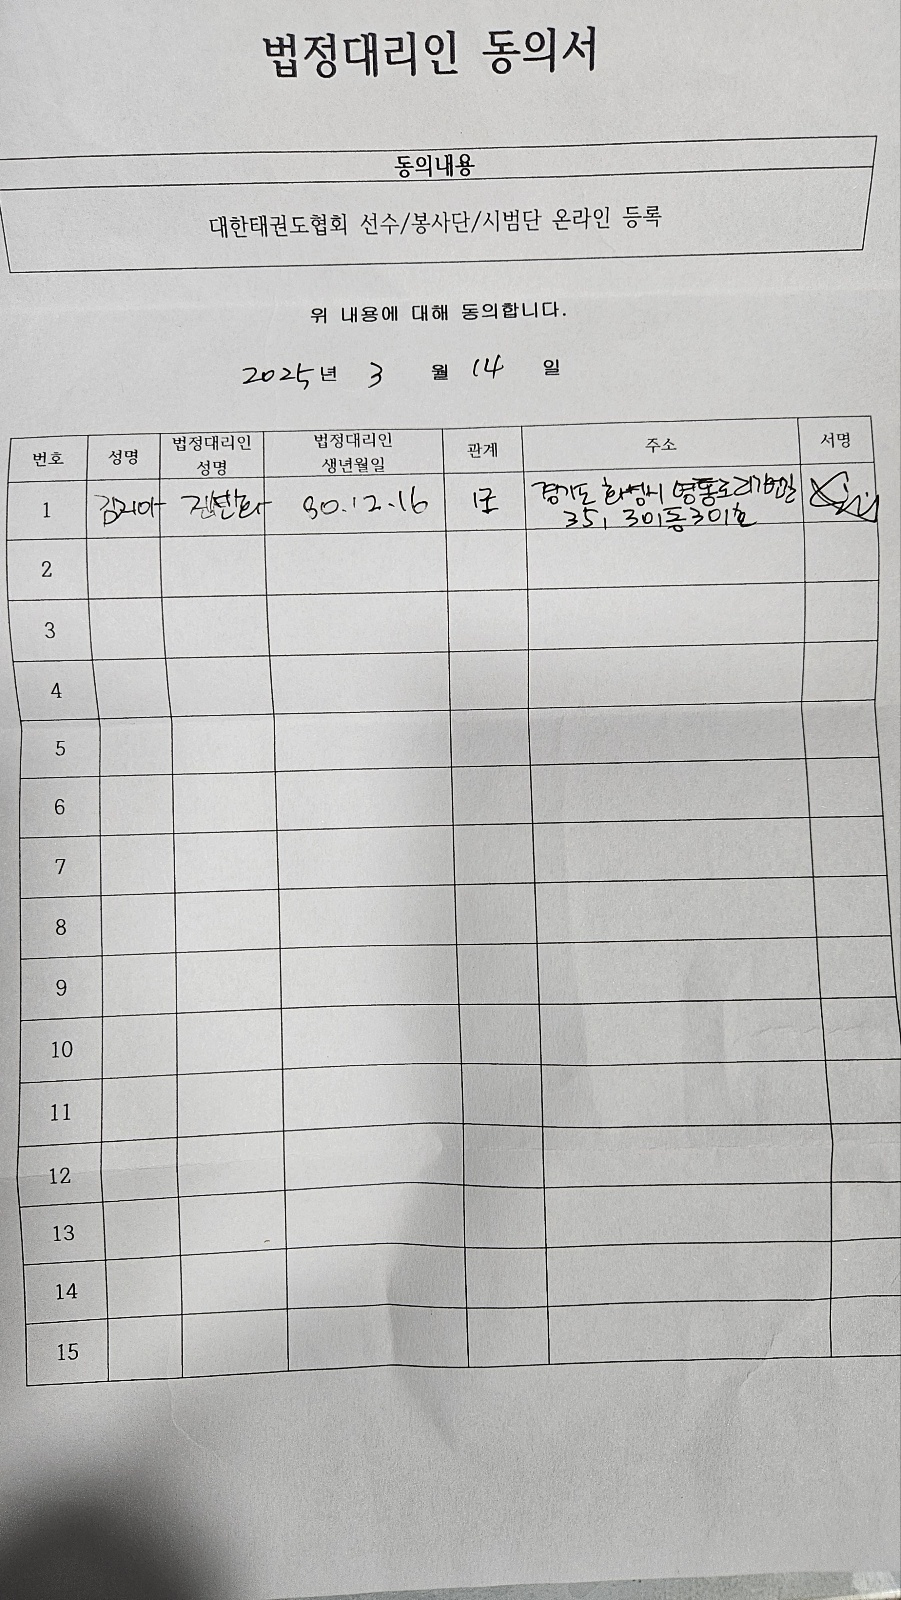 법정대리인 동의서
동의내용
대한태권도협회 선수/봉사단/시범단 온라인 등록
위 내용에 대해 동의합니다.
2025년 3 월 14 일
번호 성명 법정대리인 성명 법정대리인 생년월일 관계 주소 서명
1 80.12.16 경기도 화성시
351, 301동 301호
2
3
4
5
6
7
8
9
10
11
12
13
14
15